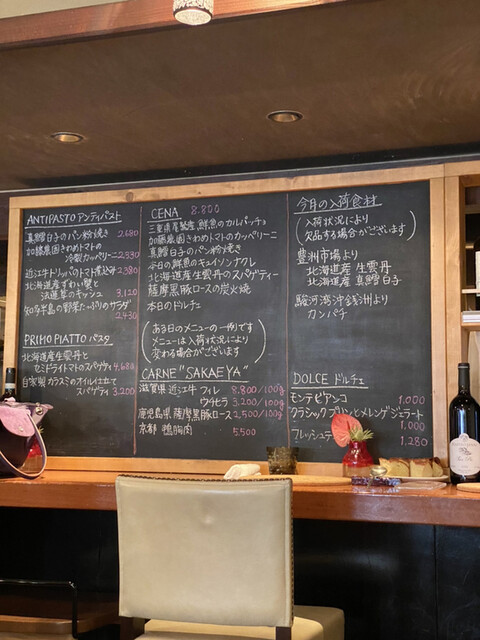 ANTIPASTO アンティパスト
真鱈白子のパン粉焼き 2,680
加藤農園きわめトマトの
冷製カッペリーニ 2,330
近江牛トリッパのトマト煮込み 2,380
北海道産ずわい蟹と
法蓮草のキッシュ 3,120
知多半島の野菜たっぷりのサラダ
2,430
PRIMO PIATTO パスタ
北海道産生雲丹と
セミドライトマトのスパゲティ 4,680
自家製カラスミのオイル仕立て
スパゲティ 3,200
CENA 8.800
三重県尾鷲産 鮮魚のカルパッチョ
加藤農園きわめトマトのカッペリーニ
真鱈白子のパン粉焼き
本日の鮮魚のキュイソンナクレ
北海道産生雲丹のスパゲティー
薩摩黒豚ロースの炭火焼
本日のドルチェ
(ある日のメニューの一例です
メニューは入荷状況により
変わる場合がございます)
CARNE "SAKAEYA"
滋賀県近江牛 フィレ 8,800/100g
ウチヒラ 3,200/100g
鹿児島県 薩摩黒豚ロース 2,500/100g
京都 鴨胸肉 5,500
今月の入荷食材
(入荷状況により
欠品する場合がございます)
豊洲市場より
北海道産 生雲丹
北海道産 真鱈白子
駿河湾沖銭洲より
カンパチ
DOLCE ドルチェ
モンテビアンコ 1,000
クラシックプリンとメレンゲジェラート
1,000
1,280